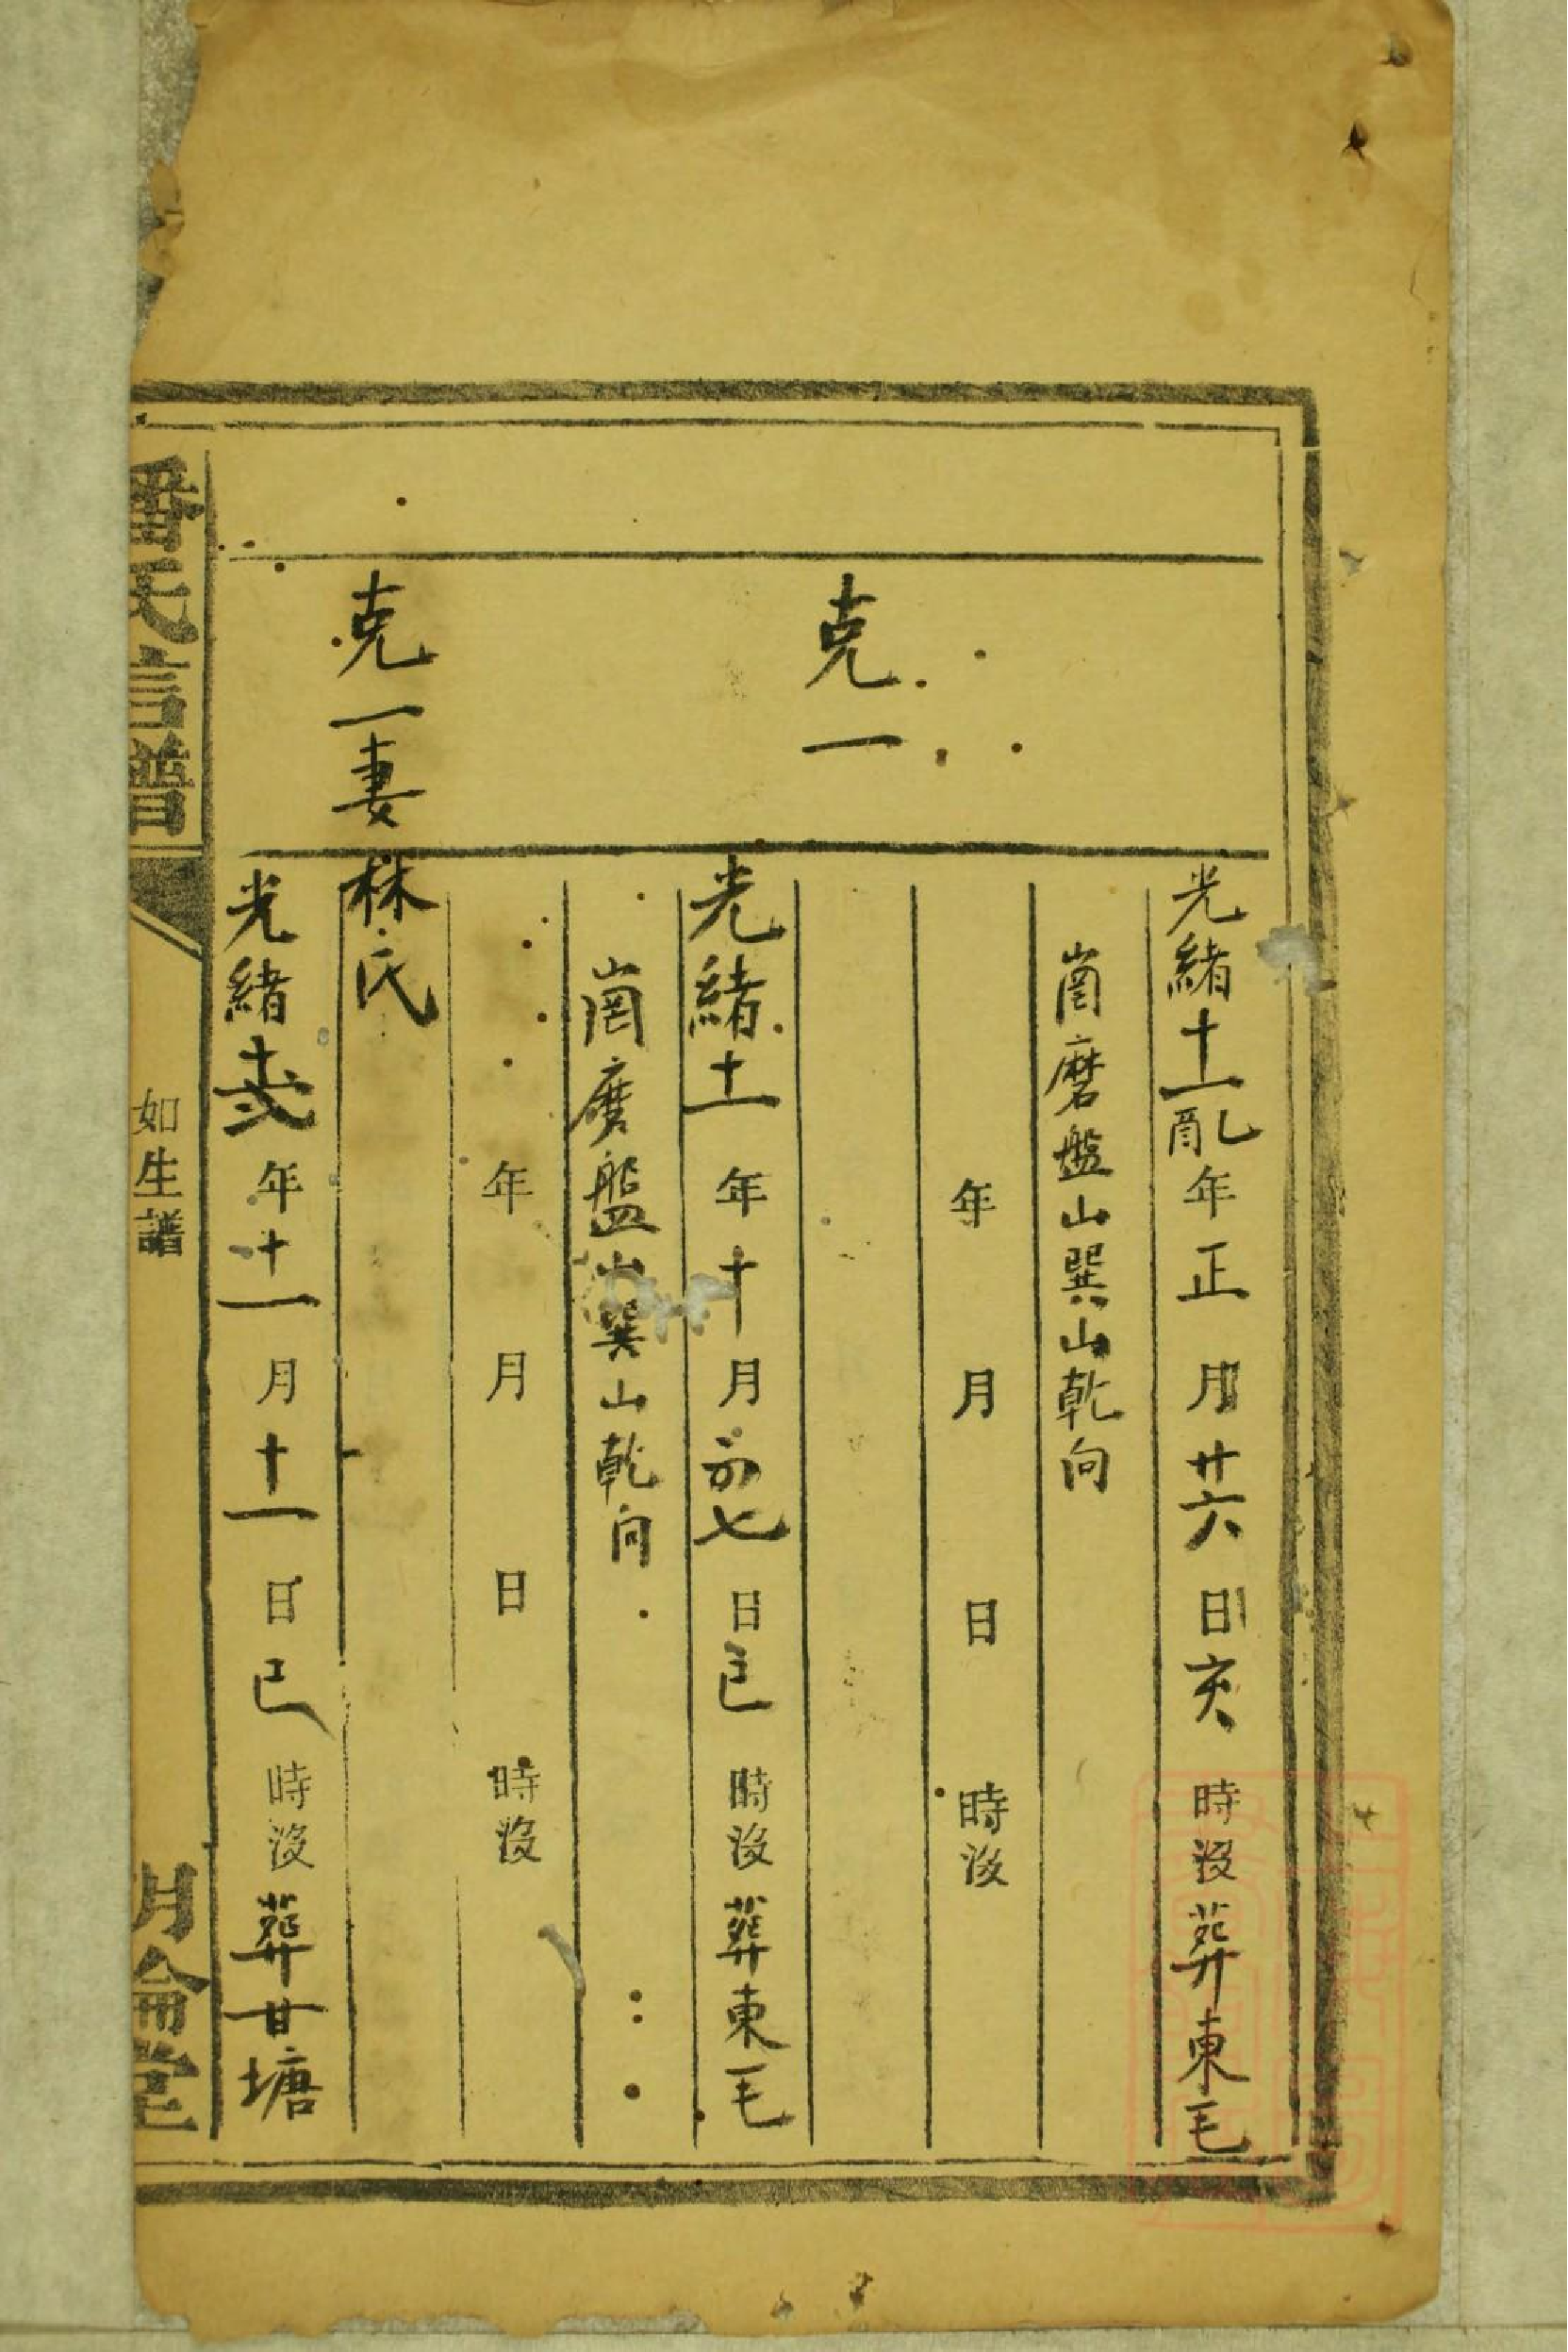 光緒十一年正月廿六日亥時沒葬東毛
崗磨盤山巽山乾向
年月日時沒
克一
光緒十一年十月初七日巳時沒葬東毛
崗磨盤山巽山乾向
年月日時沒
克一妻林氏
光緒十弍年十一月十一日巳時沒葬甘塘
潘氏信譜
如生譜
明倫堂